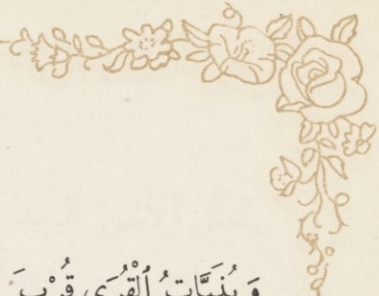 وَ بُنَيَّاتُ ٱلْقُرَى قُرْبَ